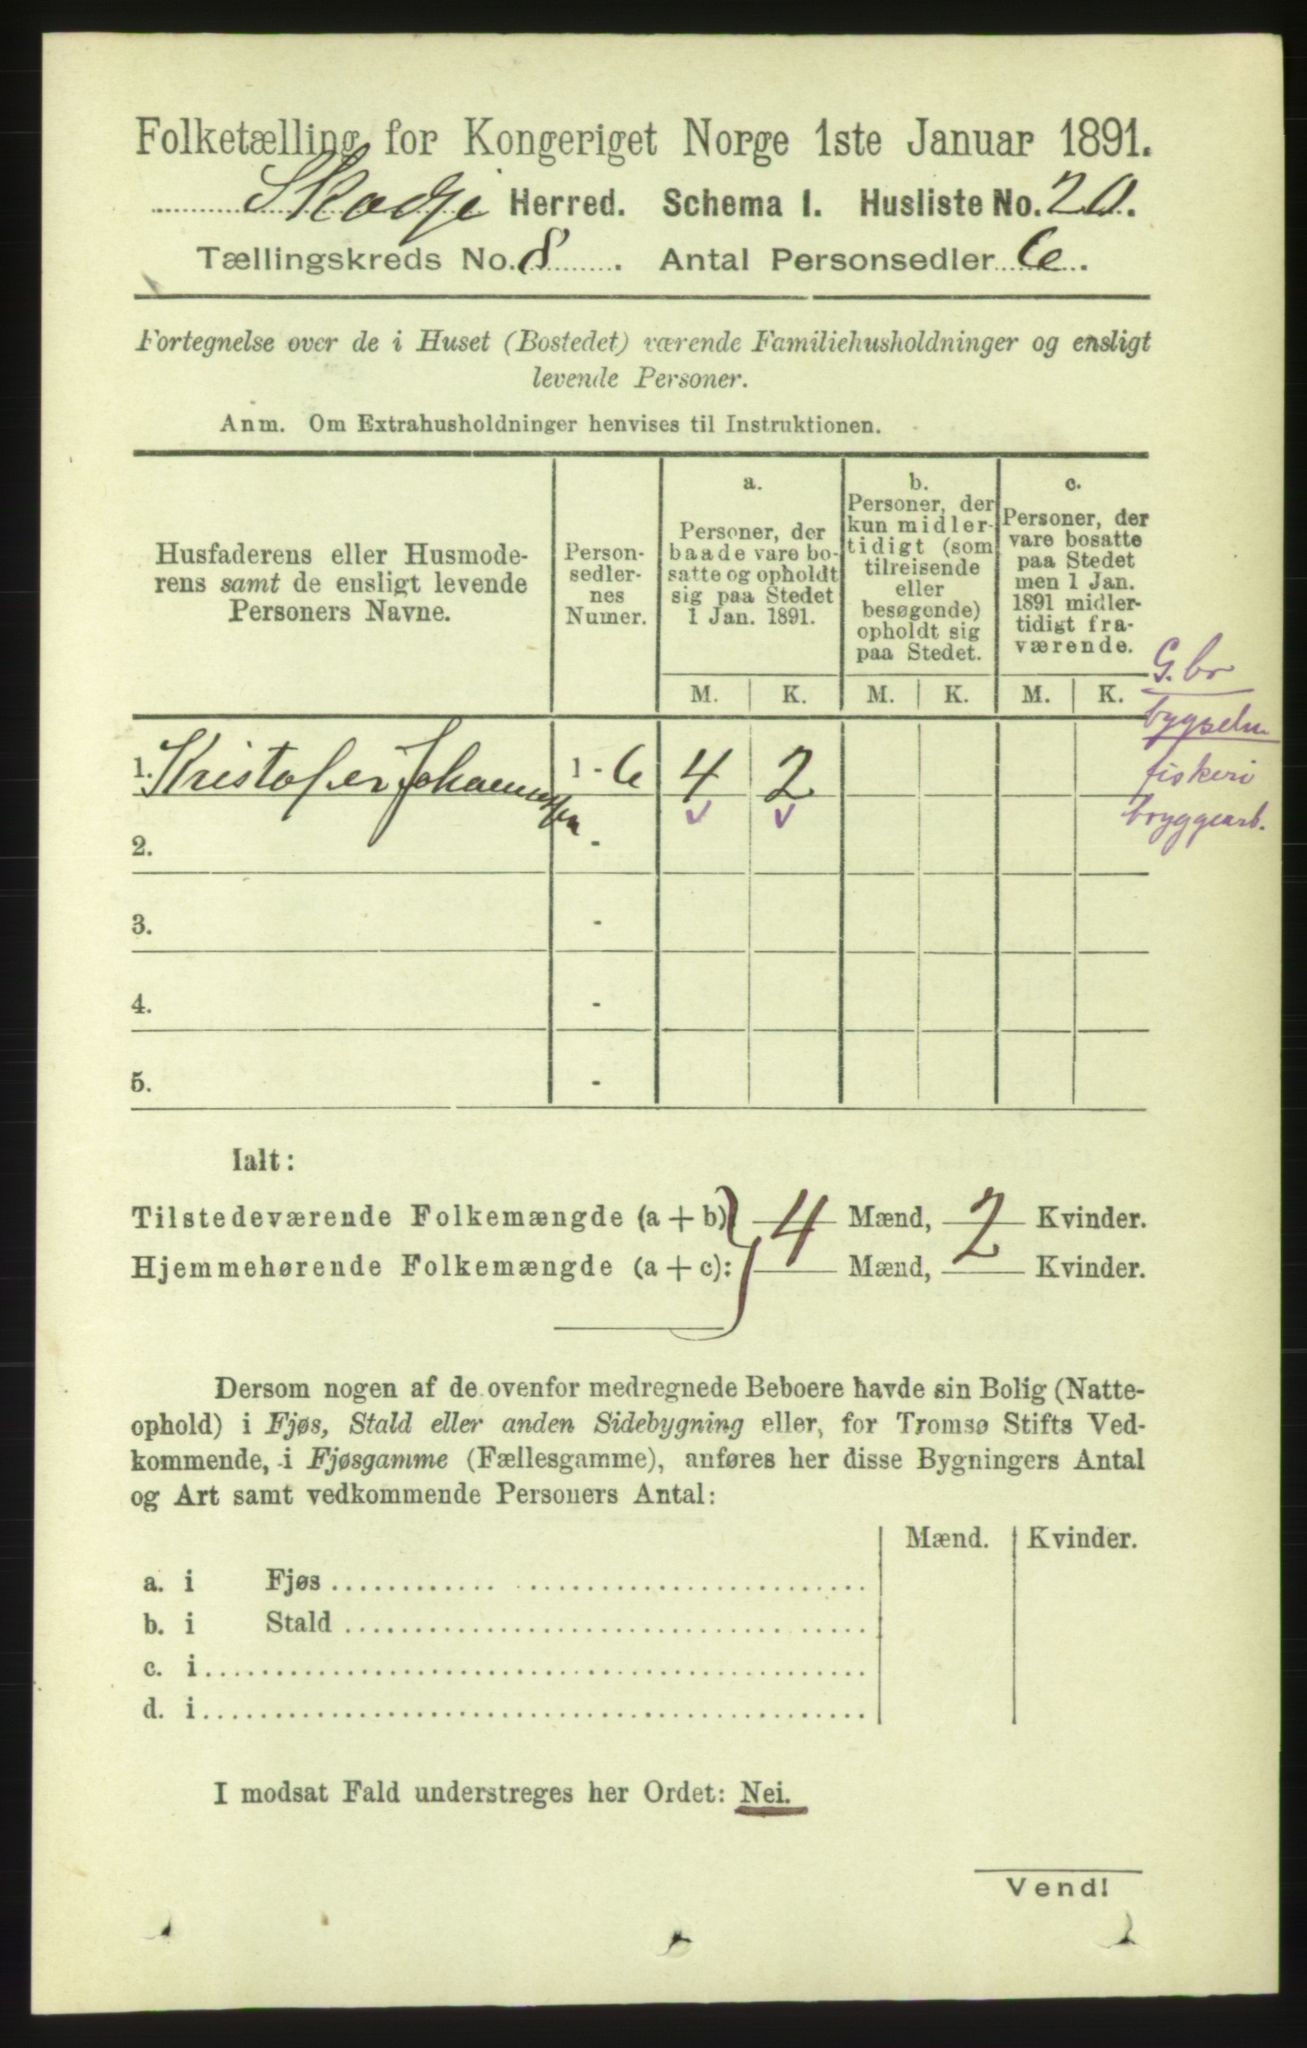 Folketælling for Kongeriget Norge 1ste Januar 1891.
Skodje Herred. Schema I. Husliste No. 20.
Tællingskreds No. 8. Antal Personsedler 6.
Fortegnelse over de i Huset (Bostedet) værende Familiehusholdninger og ensligt
levende Personer.
Anm. Om Extrahusholdninger henvises til Instruktionen.
Husfaderens eller Husmode-
rens samt de ensligt levende
Personers Navne.
Person-
sedler-
nes
Numer.
a.
Personer, der
baade vare bo-
satte og opholdt
sig paa Stedet
1 Jan. 1891.
b.
Personer, der
kun midler-
tidigt (som
tilreisende
eller
besøgende)
opholdt sig
paa Stedet.
c.
Personer, der
vare bosatte
paa Stedet
men 1 Jan.
1891 midler-
tidigt fra-
værende.
M. K. M. K. M. K.
G.br
bygseln
fiskeri
bryggearb.
1. Kristofer Johannessen 1 - 6 4 2
v v
2. -
3. -
4. -
5. -
Ialt:
Tilstedeværende Folkemængde (a + b) 4 Mænd, 2 Kvinder.
Hjemmehørende Folkemængde (a + c): Mænd, Kvinder.
Dersom nogen af de ovenfor medregnede Beboere havde sin Bolig (Natte-
ophold) i Fjøs, Stald eller anden Sidebygning eller, for Tromsø Stifts Ved-
kommende, i Fjøsgamme (Fællesgamme), anføres her disse Bygningers Antal
og Art samt vedkommende Personers Antal:
Mænd. Kvinder.
a. i Fjøs
b. i Stald
c. i
d. i
I modsat Fald understreges her Ordet: Nei.
Vend!